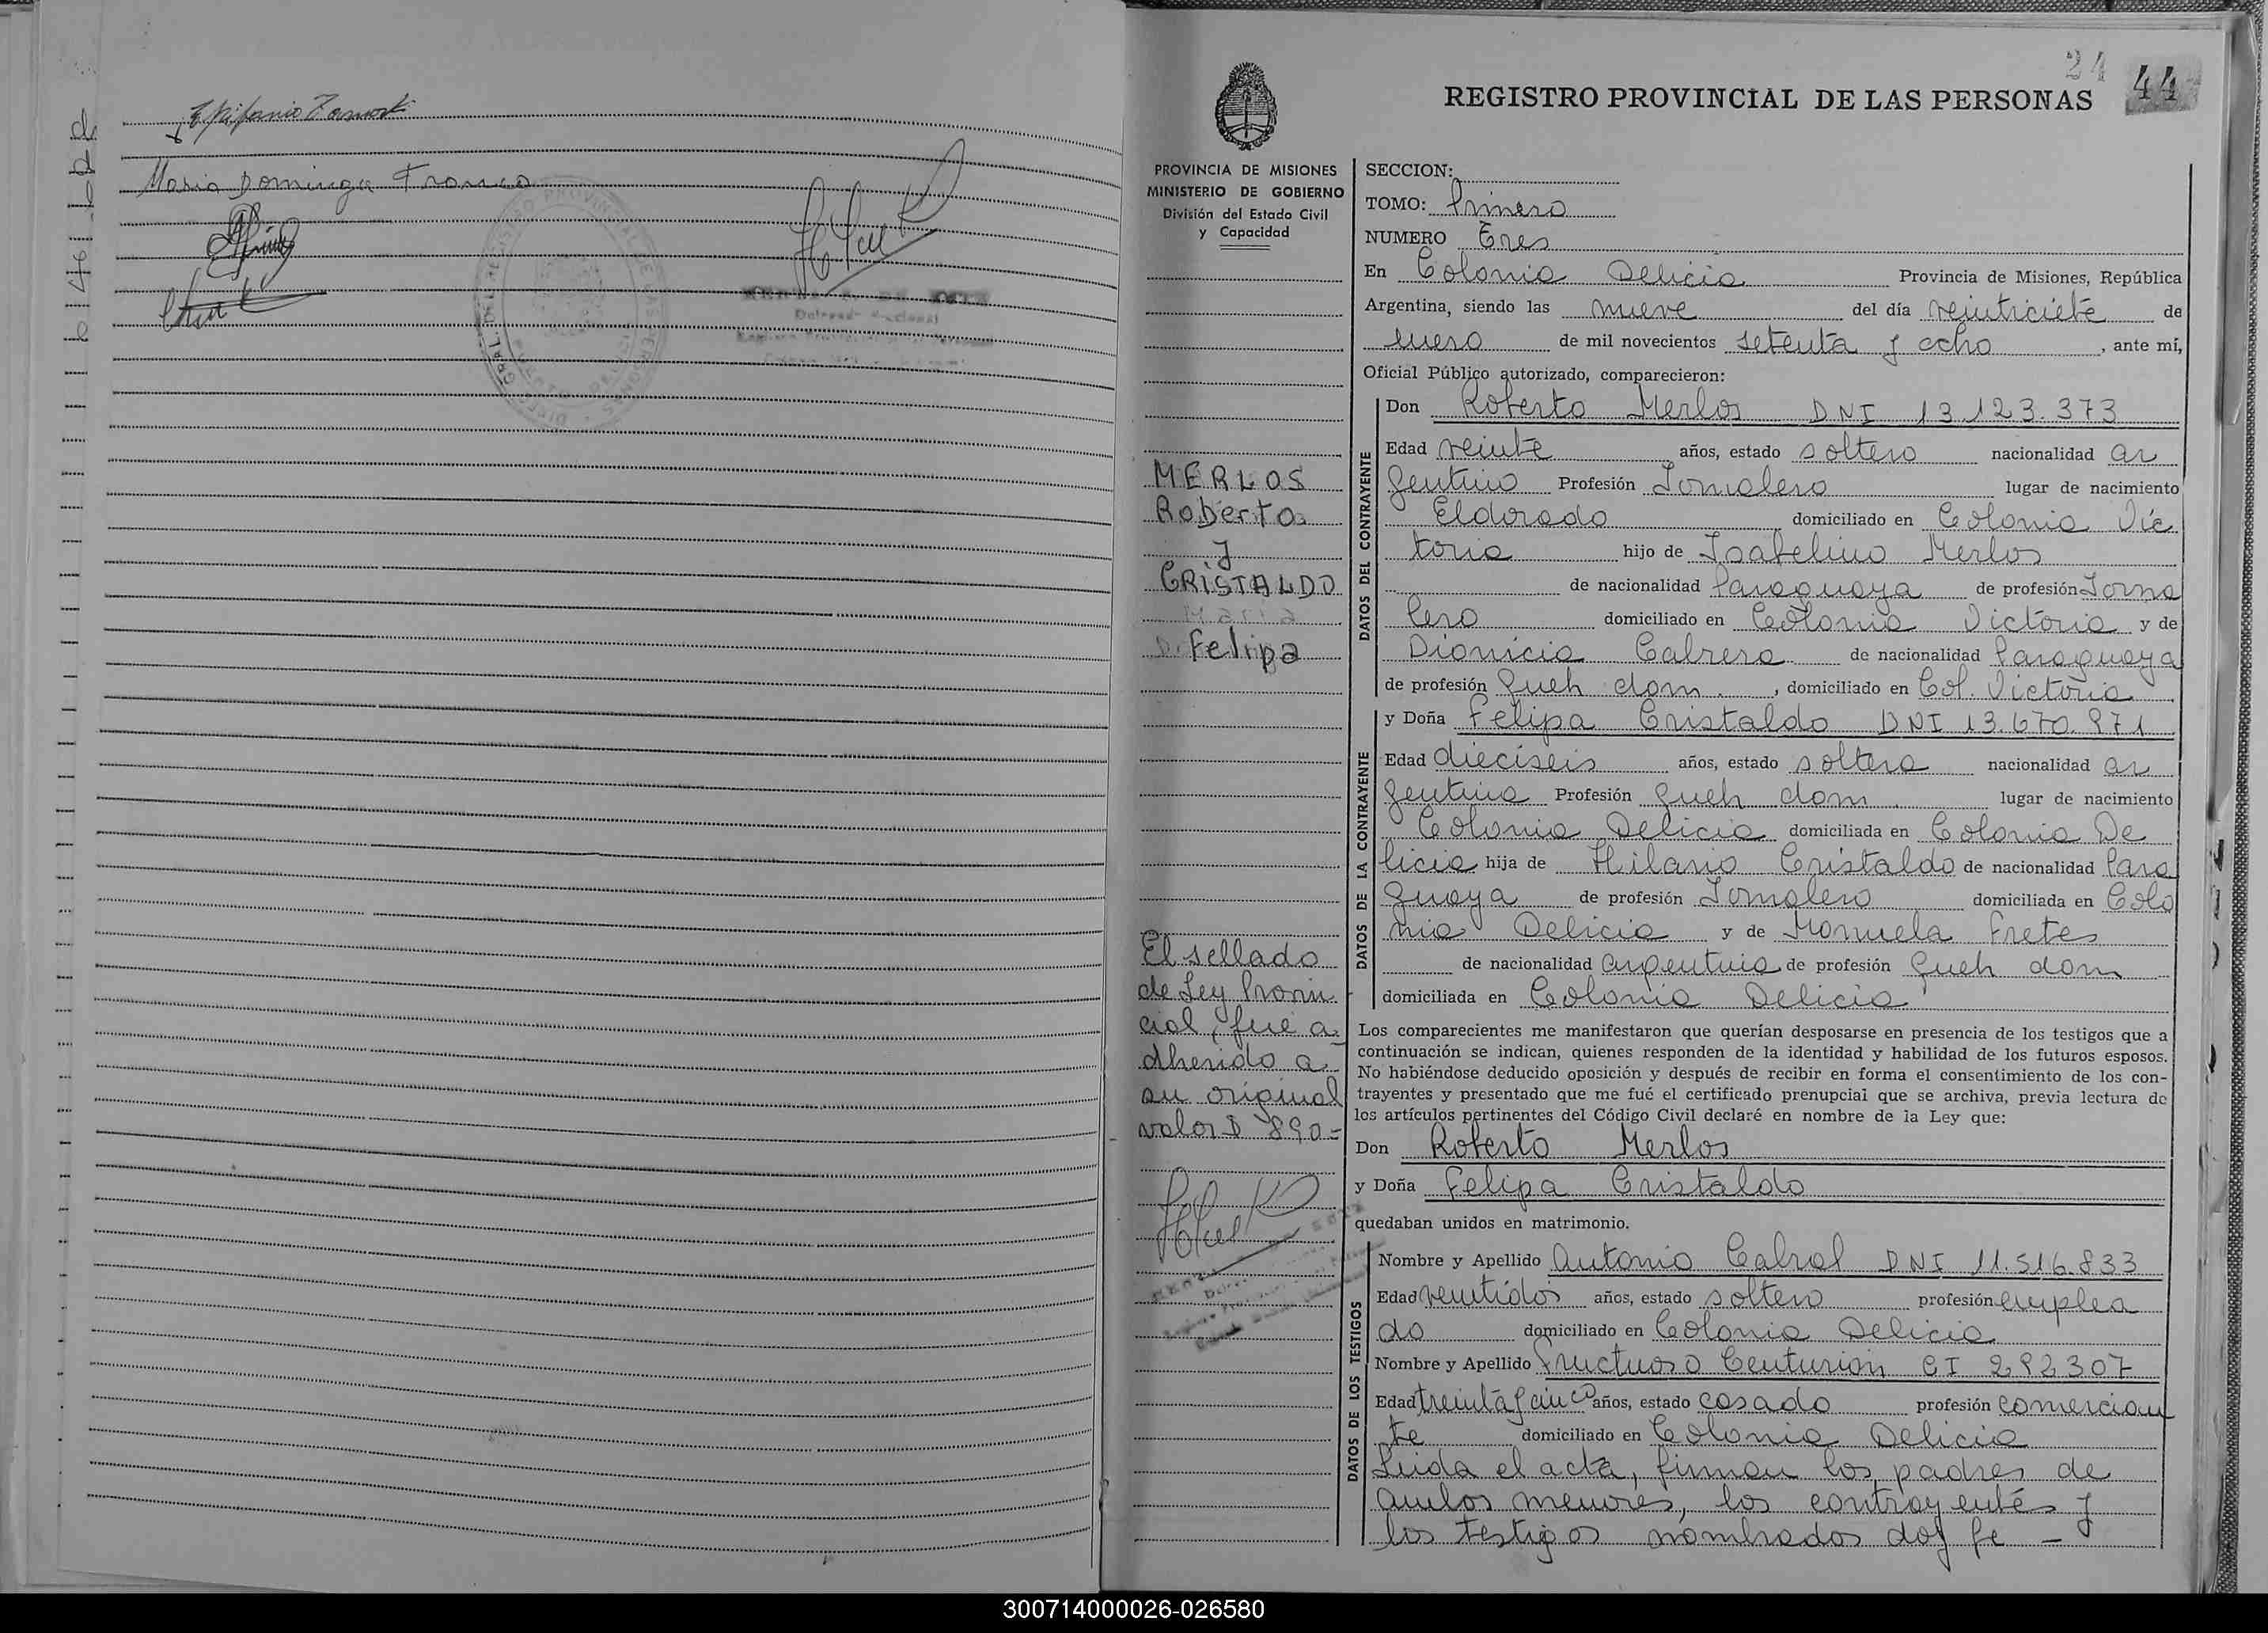 Epifanio
Maria Dominga Franco
24 44
REGISTRO PROVINCIAL DE LAS PERSONAS
PROVINCIA DE MISIONES
MINISTERIO DE GOBIERNO
División del Estado Civil
y Capacidad
MERLOS
Roberto
y
CRISTALDO
Maria
Felipa
El sellado
de Ley Provin
cial, fué a
dherido a
su original
valor $ 890=
SECCION:
TOMO: Primero
NUMERO Tres
En Colonia Delicia Provincia de Misiones, República
Argentina, siendo las nueve del día veinticiete de
enero de mil novecientos setenta y ocho, ante mí,
Oficial Público autorizado, comparecieron:
DATOS DEL CONTRAYENTE
Don Roberto Merlos DNI 13.123.373
Edad veinte años, estado soltero nacionalidad ar
gentino Profesión Jornalero lugar de nacimiento
Eldorado domiciliado en Colonia Vic
toria hijo de Isabelino Merlos
de nacionalidad Paraguaya de profesión Jorna
lero domiciliado en Colonia Victoria y de
Dionicia Cabrera de nacionalidad Paraguaya
de profesión Queh dom., domiciliado en Col. Victoria
DATOS DE LA CONTRAYENTE
y Doña Felipa Cristaldo DNI 13.670.971
Edad dieciseis años, estado soltera nacionalidad ar
gentina Profesión Queh dom. lugar de nacimiento
Colonia Delicia domiciliada en Colonia De
licia hija de Hilario Cristaldo de nacionalidad Para
guaya de profesión Jornalero domiciliada en Colo
nia Delicia y de Manuela Fretes
de nacionalidad argentina de profesión Queh dom
domiciliada en Colonia Delicia
Los comparecientes me manifestaron que querían desposarse en presencia de los testigos que a
continuación se indican, quienes responden de la identidad y habilidad de los futuros esposos.
No habiéndose deducido oposición y después de recibir en forma el consentimiento de los con-
trayentes y presentado que me fué el certificado prenupcial que se archiva, previa lectura de
los artículos pertinentes del Código Civil declaré en nombre de la Ley que:
Don Roberto Merlos
y Doña Felipa Cristaldo
quedaban unidos en matrimonio.
DATOS DE LOS TESTIGOS
Nombre y Apellido Antonio Cabral DNI 11.516.833
Edad veintidos años, estado soltero profesión emplea
do domiciliado en Colonia Delicia
Nombre y Apellido Fructuoso Centurion CI 292307
Edad treinta y cinco años, estado casado profesión comercian
te domiciliado en Colonia Delicia
Leida el acta, firman los padres de
ambos menores, los contrayentes y
los testigos nombrados doy fe -
300714000026-026580